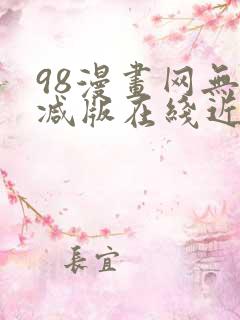 98漫畫网無
减版在綫近
長宜